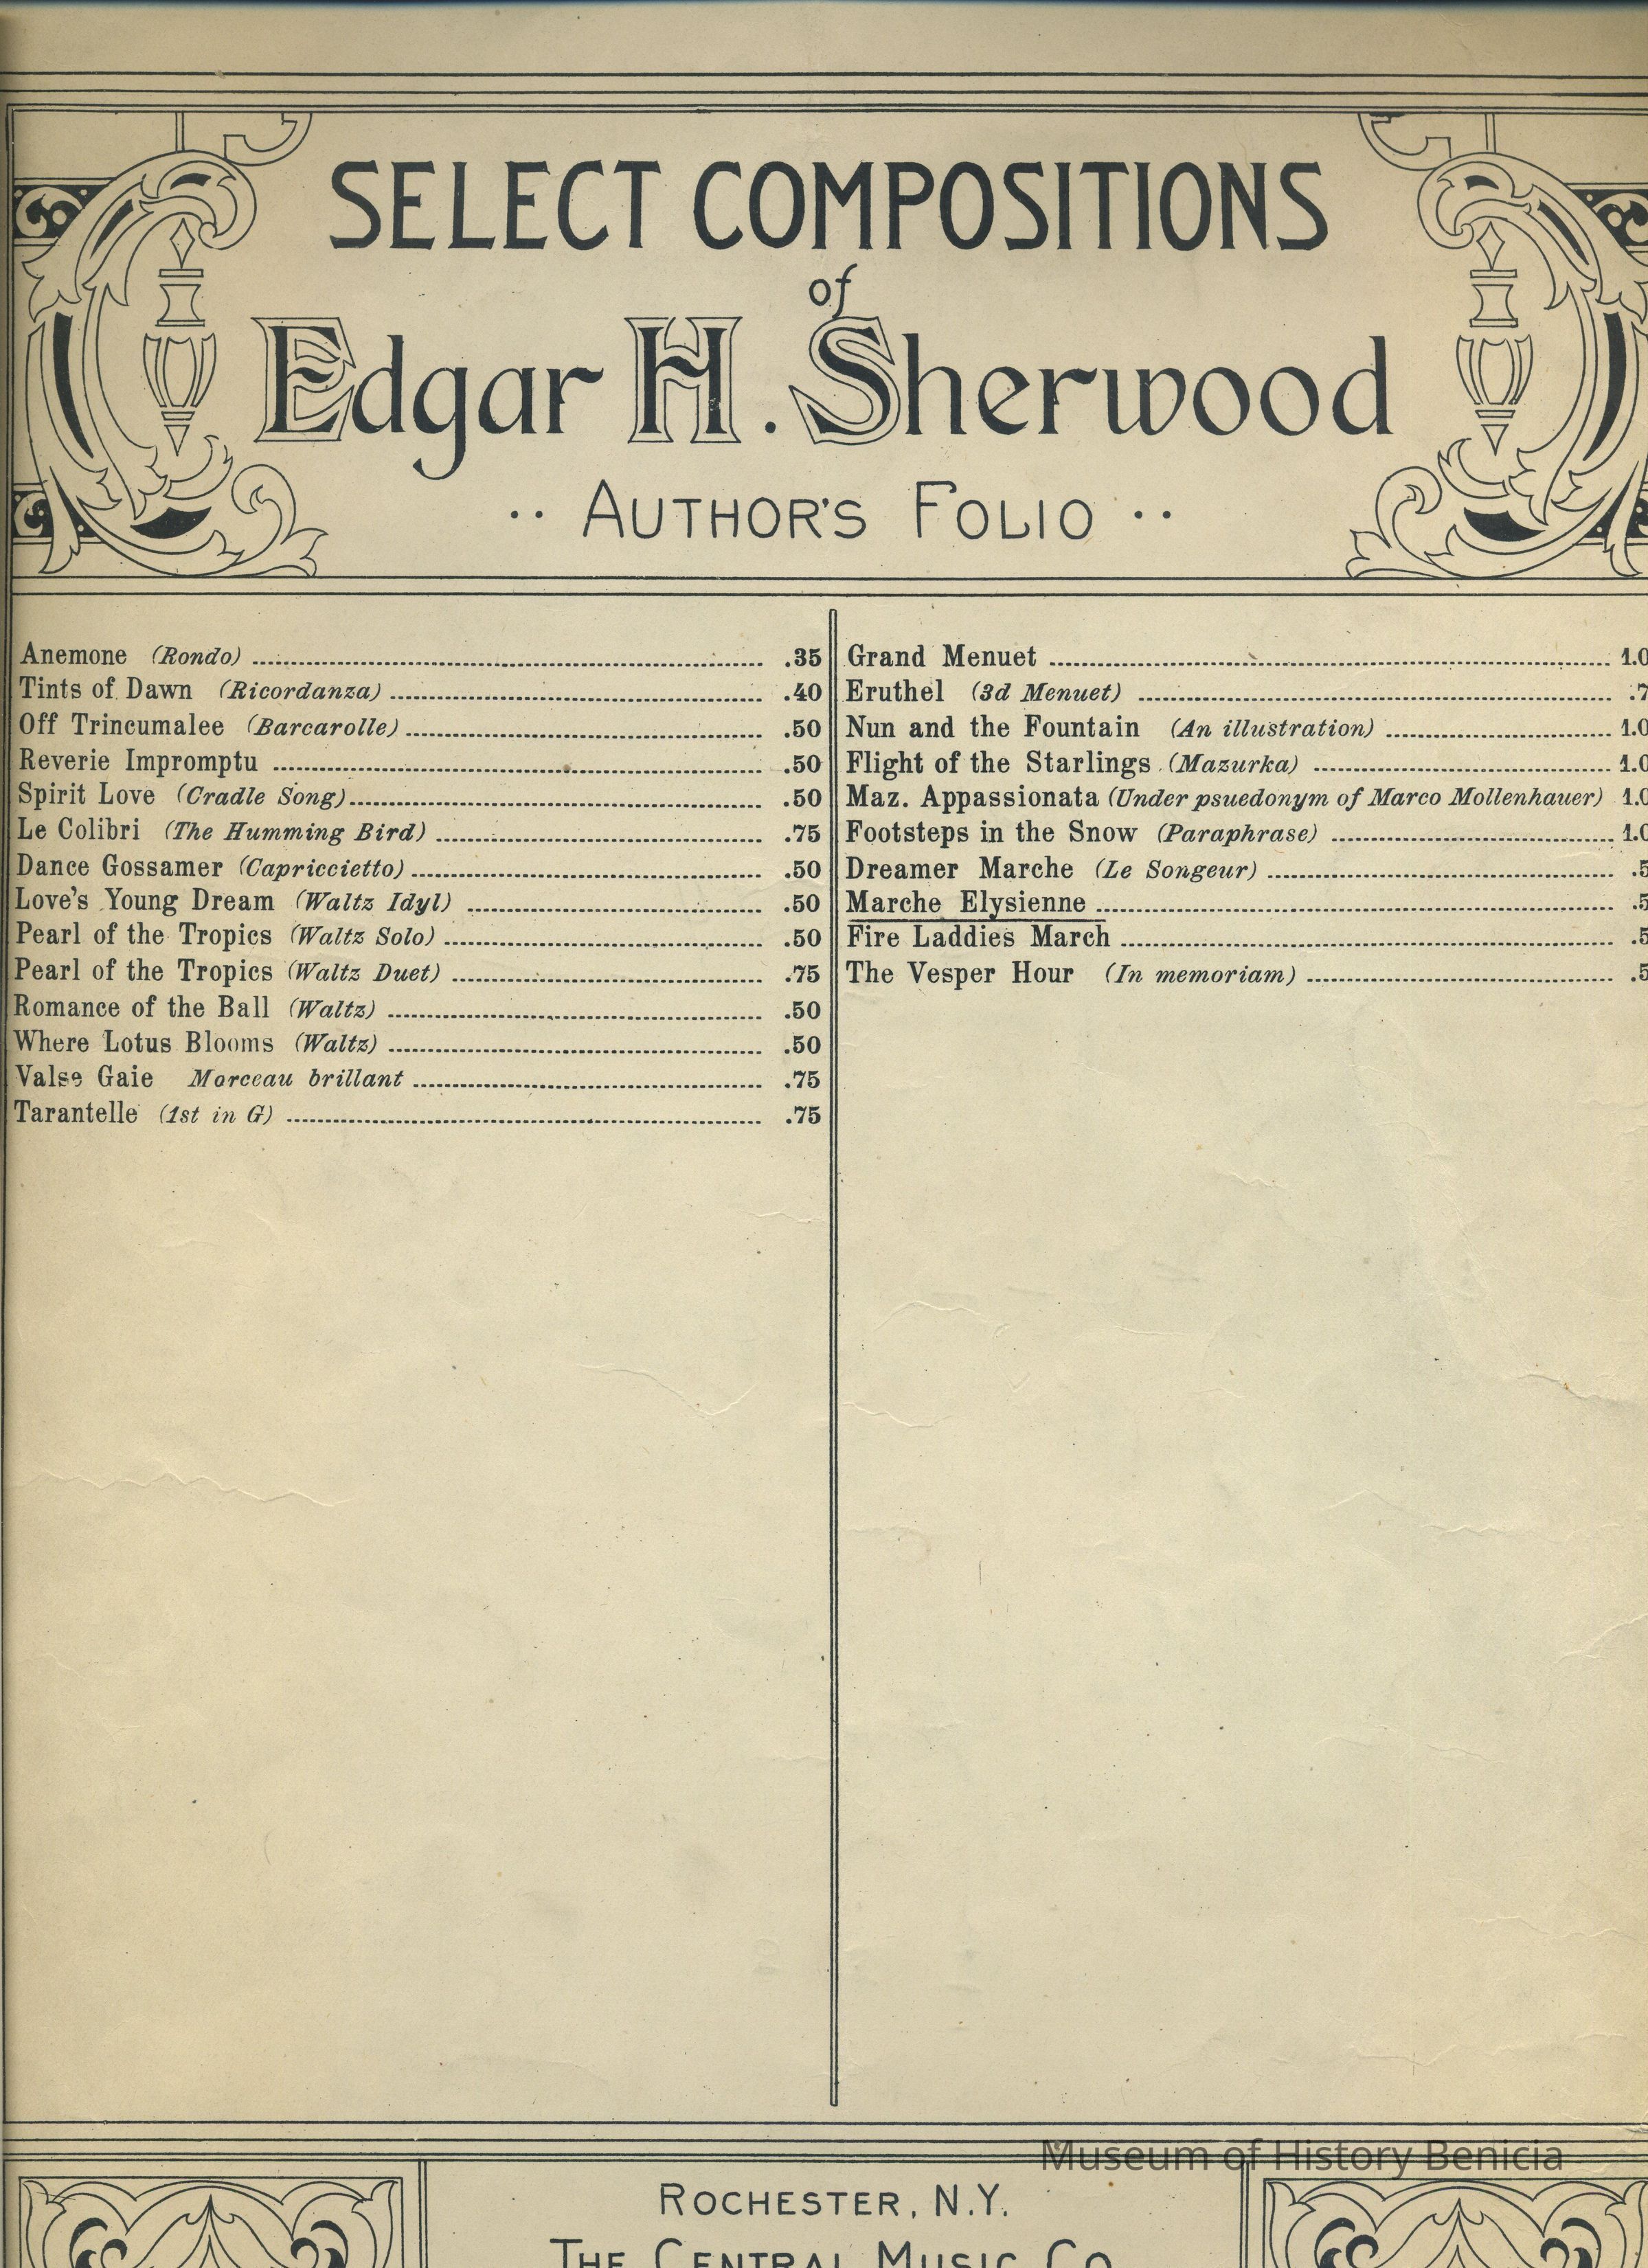 SELECT COMPOSITIONS
of
Edgar H. Sherwood
·· AUTHOR'S FOLIO ··
Anemone (Rondo) .35
Tints of Dawn (Ricordanza) .40
Off Trincumalee (Barcarolle) .50
Reverie Impromptu .50
Spirit Love (Cradle Song) .50
Le Colibri (The Humming Bird) .75
Dance Gossamer (Capricciettο) .50
Love's Young Dream (Waltz Idyl) .50
Pearl of the Tropics (Waltz Solo) .50
Pearl of the Tropics (Waltz Duet) .75
Romance of the Ball (Waltz) .50
Where Lotus Blooms (Waltz) .50
Valse Gaie Morceau brillant .75
Tarantelle (1st in G) .75
Grand Menuet 1.0
Eruthel (3d Menuet) .7
Nun and the Fountain (An illustration) 1.0
Flight of the Starlings (Mazurka) 1.0
Maz. Appassionata (Under psuedonym of Marco Mollenhauer) 1.0
Footsteps in the Snow (Paraphrase) 1.0
Dreamer Marche (Le Songeur) .5
Marche Elysienne .5
Fire Laddies March .5
The Vesper Hour (In memoriam) .5
Museum of History Benicia
ROCHESTER, N.Y.
THE CENTRAL MUSIC CO